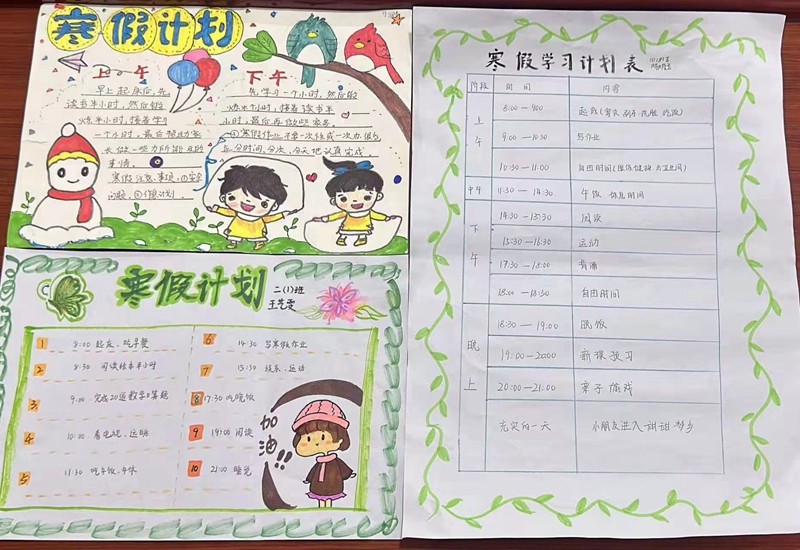 寒假计划
上午
早上起床后,先
读书半小时,然后锻
炼半小时,接着学习
一个小时,最后帮助家
长做一些力所能及的
事情。
寒假注意事项:①安全
问题,②假计划。
下午
先学习一个小时,然后锻
炼半个小时,接着读书半
小时,最后再做些家务
①寒假作业不要一次性或一次办很多
分时间、分次、分天地认真完成
寒假计划
二(1)班
王艺雯
1 8:00 起床、吃早餐
2 8:30 阅读绘本半小时
3 9:00 完成20道数学口算题
4 10:00 看电视、运动
5 11:30 吃午饭、午休
6 14:30 写寒假作业
7 15:30 娱乐、运动
8 17:30 吃晚饭
9 19:00 阅读
10 21:00 睡觉
加油!!
寒假学习计划表
阶段 时间 内容
上午
8:00—9:00
9:00—10:30 写作业
10:30—11:00 自由时间
中午 11:30—14:30 午饭 休息时间
下午
14:30—15:30 阅读
15:30—16:30 运动
17:30—18:00 背诵
18:00—18:30 自由时间
晚上
18:30—19:00 晚饭
19:00—20:00 新课预习
20:00—21:00 亲子游戏
充实的一天 小朋友进入甜甜梦乡